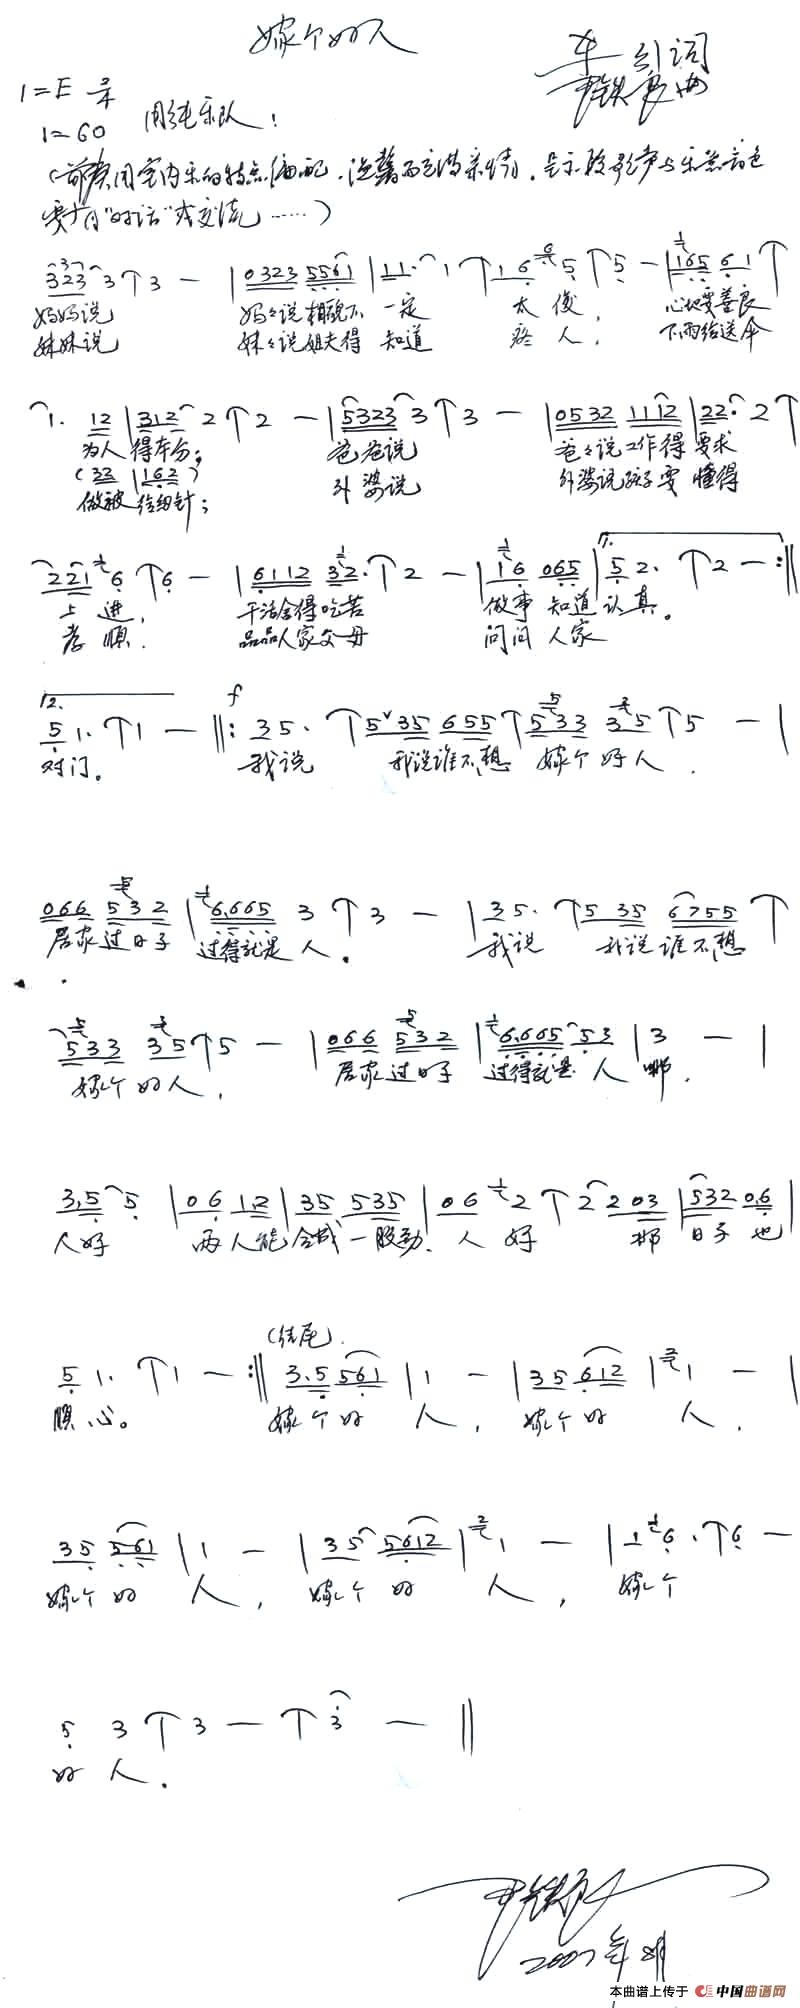 嫁个好人
车引词
尹铁良曲
1=E 2/4
1=60 用纯乐队!
3 2 3 3 3 — | 0323 5561 | 11· 1 | 1 6 5 5 — | 165 6 1 |
妈妈说 妈々说相貌不一定太俊 心地要善良
妹妹说 妹々说姐夫得知道疼人, 下雨给送伞
1. 12 | 312 2 2 — | 5323 3 3 — | 0532 1112 | 22· 2
为人得本分; 爸爸说 爸々说工作得要求
(33 | 162)
做被给纫针; 外婆说 外婆说孩子要懂得
221 6 6 — | 6112 32· 2 — | 16 065 | 1. 5 2· 2 — :||
上进, 干活舍得吃苦 做事知道认真。
孝顺. 品品人家父母 问问人家
2. 5 1· 1 — ||: f 3 5· 5 35 655 533 35 5 — |
对门。 我说 我说谁不想 嫁个好人.
066 532 | 6.665 3 3 — | 3 5· 5 35 6755
居家过日子 过得就是人. 我说 我说谁不想
533 35 5 — | 066 532 | 6.665 53 | 3 — |
嫁个好人, 居家过日子 过得就是人哪.
3.5 5 | 06 1.2 | 35 535 | 06 2 2 2 03 | 532 0.6 |
人好 两人能合成一股劲. 人好 那日子也
(结尾)
5 1· 1 — :|| 3.5 561 | 1 — | 35 612 | 1 — |
顺心。 嫁个好人, 嫁个好人,
35 561 | 1 — | 35 5612 | 1 — | 1 6· 6 —
嫁个好人, 嫁个好人, 嫁个
5 3 3 — 3 — ||
好人.
尹铁良
2007年8月
本曲谱上传于 中国曲谱网